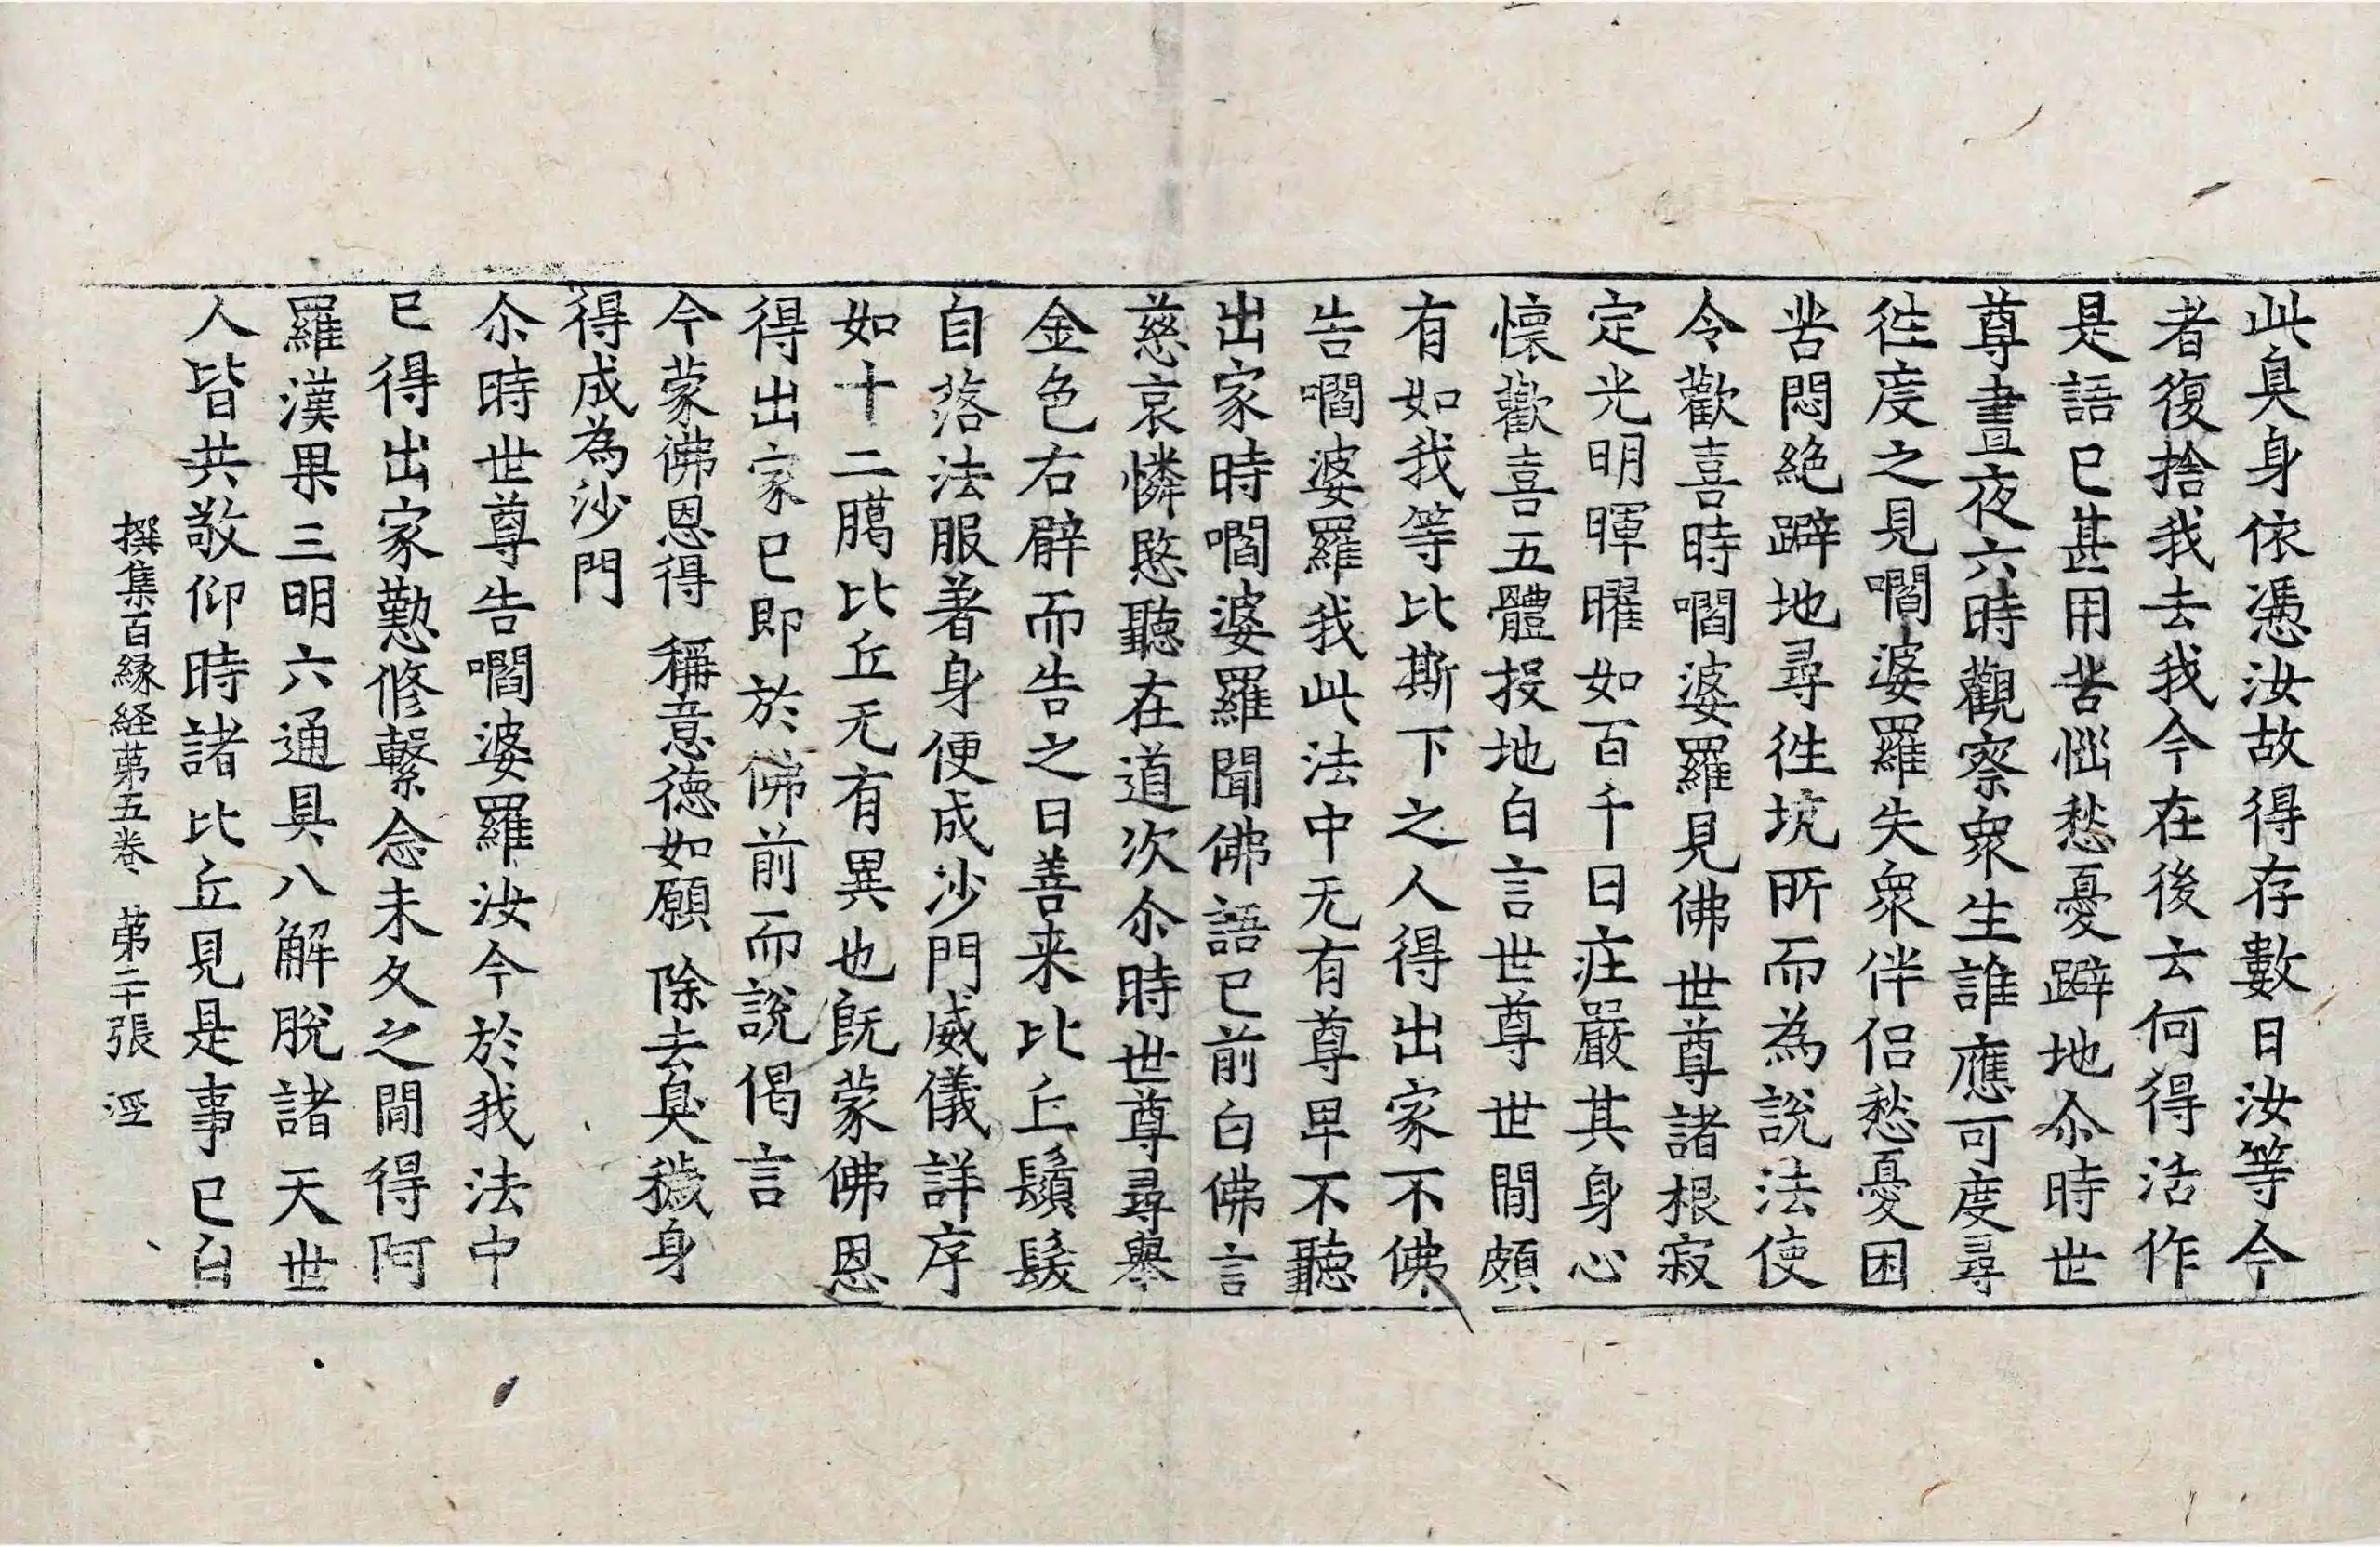 此臭身依憑汝故得存數日汝等今
者復捨我去我今在後云何得活作
是語已甚用苦惱愁憂躃地尒時世
尊晝夜六時觀察衆生誰應可度尋
徃度之見嚪婆羅失衆伴侣愁憂困
苦悶絶躃地尋徃坑所而為說法使
令歡喜時嚪婆羅見佛世尊諸根寂
定光明暉曜如百千日庄嚴其身心
懷歡喜五體投地白言世尊世間頗
有如我等比斯下之人得出家不佛
告嚪婆羅我此法中无有尊卑不聽
出家時嚪婆羅聞佛語已前白佛言
慈哀憐愍聽在道次尒時世尊尋舉
金色右臂而告之曰善来比丘鬚髮
自落法服著身便成沙門威儀詳序
如十二臈比丘无有異也既蒙佛恩
得出家已即於佛前而說偈言
今蒙佛恩得　稱意徳如願　除去臭穢身
得成為沙門
尒時世尊告嚪婆羅汝今於我法中
已得出家懃修繫念未久之間得阿
羅漢果三明六通具八解脫諸天世
人皆共敬仰時諸比丘見是事已白
撰集百縁経苐五卷　苐二十張　㳏